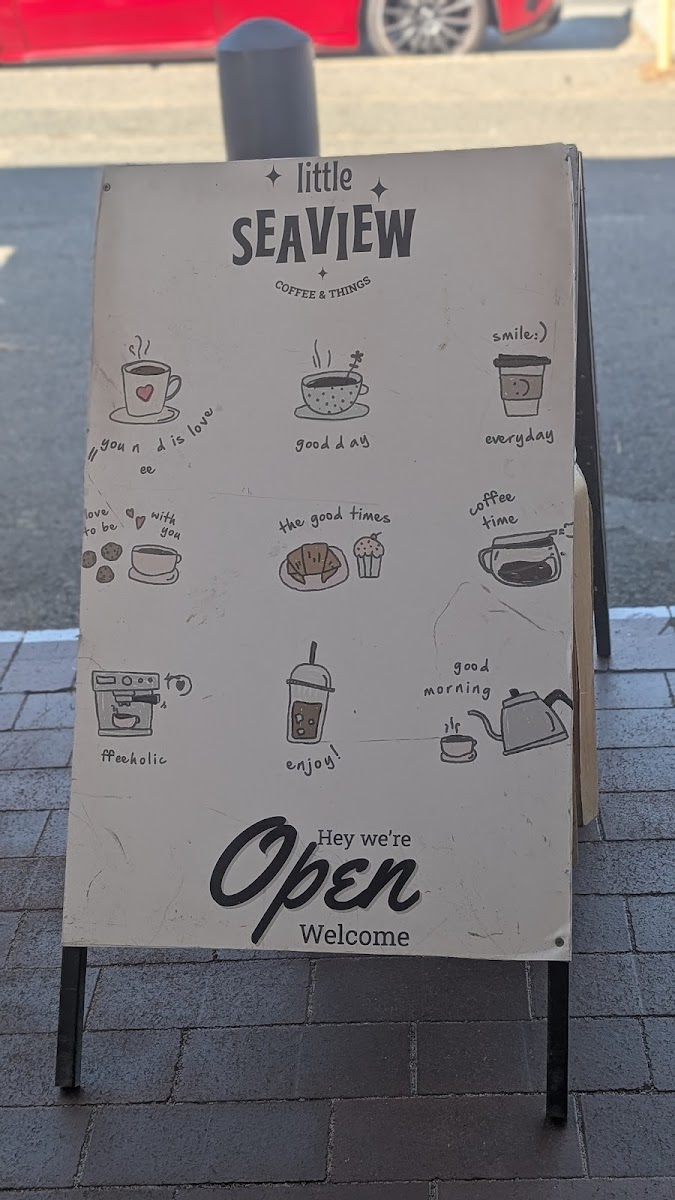 little
SEAVIEW
COFFEE & THINGS
smile:)
"you n d is love
ee
good day
everyday
love
to be
with
you
the good times
coffee
time
good
morning
ffeeholic
enjoy!
Hey we're
Open
Welcome